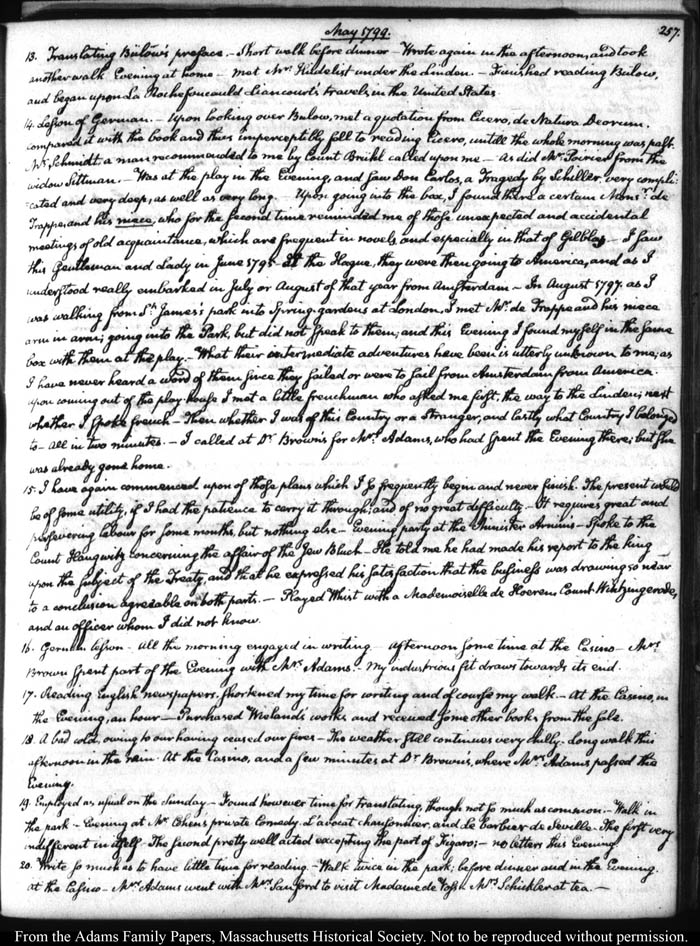 May 1799.
257.
13. Translating Bülow's preface. – Short walk before dinner – Wrote again in the afternoon, and took
another walk Evening at home – met Mrs. under the Linden. – Finished reading Bülow,
and began upon La Rochefoucauld Liancourt's travels, in the United States
14. Lesson of German. – Upon looking over Bulow, met a quotation from Cicero, de Natura Deorum.
compared it with the book and thus imperceptibly fell to reading Cicero, untill the whole morning was past.
Mr. Schmidt a man recommended to me by Count Brühl called upon me – as did Mr. Poirier from the
widow Sittman. – Was at the play in the Evening, and saw Don Carlos, a Tragedy by Schiller, very compli-
cated and very deep, as well as very long. – Upon going into the box, I found there a certain Monsr. de
Trappe, and his niece, who for the second time reminded me of those unexpected and accidental
meetings of old acquaintance, which are frequent in novels, and especially in that of Gilblas. – I saw
this Gentleman and Lady in June 1795 at the Hague, they were then going to America, and as I
understood really embarked in July or August of that year from Amsterdam – In August 1797. as I
was walking from St. James's park into Spring-gardens at London, I met Mr. de Trappe and his niece
arm in arm, going into the Park, but did not speak to them; and this Evening I found myself in the same
box with them at the play. – What their intermediate adventures have been is utterly unknown to me; as
I have never heard a word of them since they sailed or were to sail from Amsterdam from America.
upon coming out of the play-house I met a little frenchman who asked me first, the way to the Linden; next
whether I spoke french – Then whether I was of this Country or a stranger; and lastly what Country I belonged
to – all in two minutes. – I called at Dr. Brown's for Mrs. Adams, who had spent the Evening there; but she
was already gone home.
15. I have again commenced upon of those plans which I so frequently begin and never finish. The present would
be of some utility, if I had the patience to carry it through; and of no great difficulty – It requires great and
persevering labour for some months, but nothing else – Evening party at the Minister Arnim's – Spoke to the
Count Haugwitz concerning the affair of the Jew – He told me he had made his report to the king
upon the subject of the Treaty, and that he expressed his satisfaction that the business was drawing so near
to a conclusion agreeable on both parts. – Played Whist with a Mademoiselle de Count Wintzingerode,
and an officer whom I did not know.
16. German lesson – All the morning engaged in writing – afternoon some time at the Casino – Mrs.
Brown spent part of the Evening with Mrs. Adams. – My industrious fit draws towards its end.
17. Reading English newspapers, shortened my time for writing and of course my walk. – At the Casino, in
the Evening, an hour – Purchased Wieland's works, and received some other books from the sale.
18. A bad cold, owing to our having ceased our fires – The weather still continues very chilly. Long walk this
afternoon in the rain. At the Casino, and a few minutes at Dr. Brown's, where Mrs. Adams passed the
Evening.
19. Employed as usual on the Sunday – Found however time for translating, though not so much as common. – Walk in
the park – Evening at Mr. Cohen's private Comedy. L'avocat chansonnier, and Le Barbier de Seville. – The first very
indifferent in itself. The second pretty well acted excepting the part of Figaro; – no letters this Evening
20. Write so much as to have little time for reading. – Walk twice in the park; before dinner and in the Evening.
at the Casino – Mrs. Adams went with Mrs. Sanford to visit Madame de Voss. Mrs. Schickler at tea. –
From the Adams Family Papers, Massachusetts Historical Society. Not to be reproduced without permission